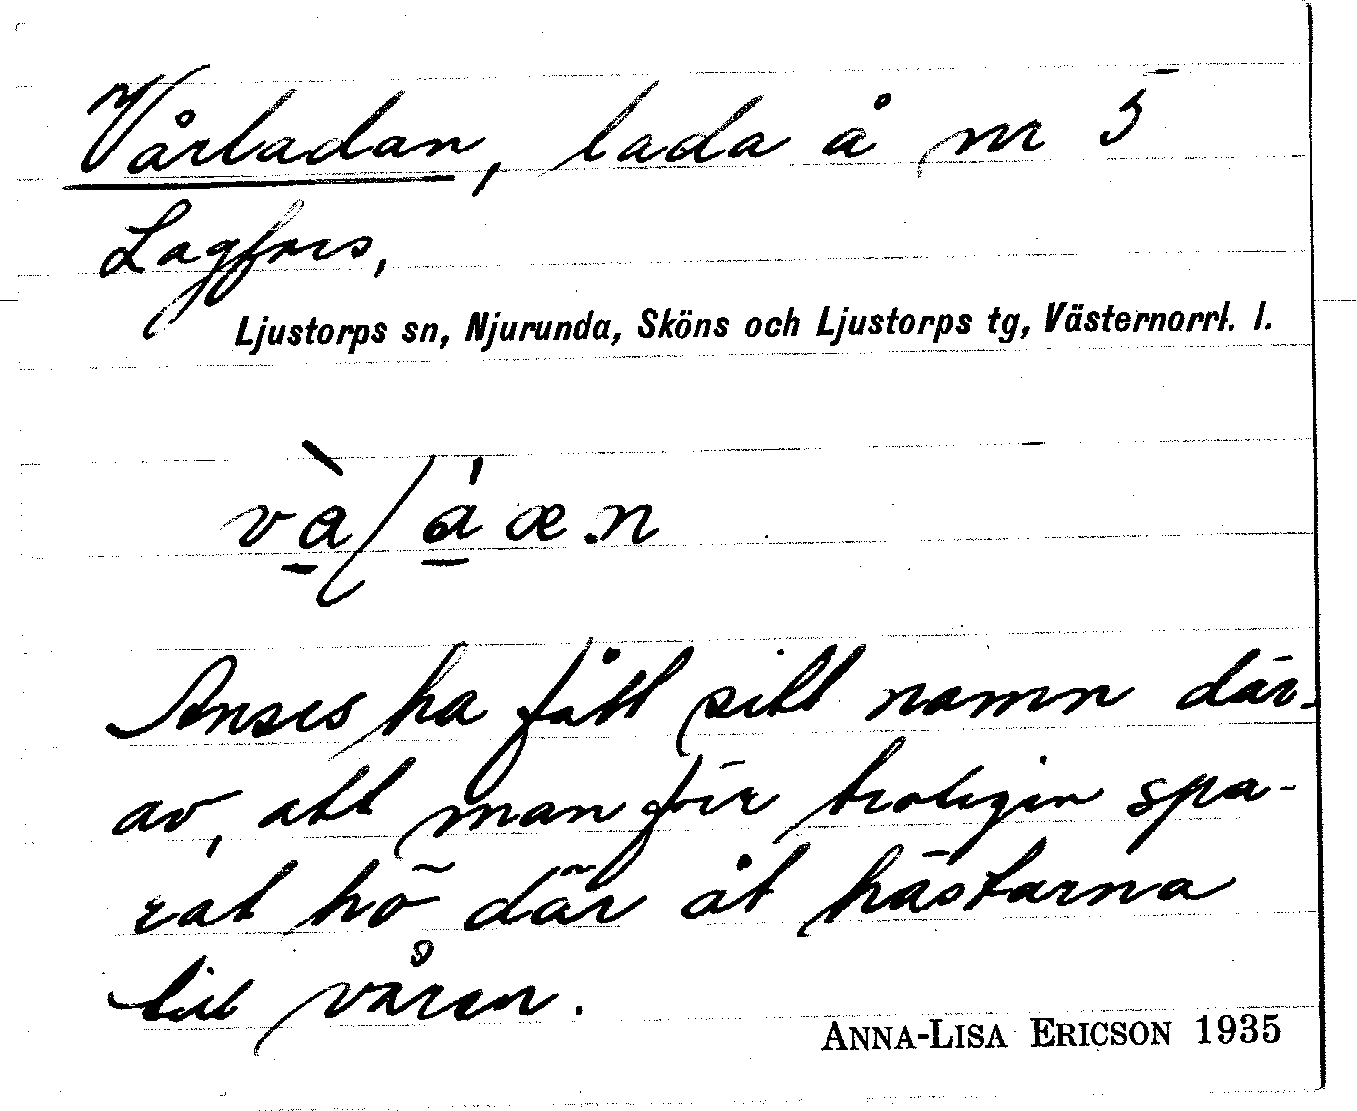 Vårladan, lada å nr 5
Lagfors,
Ljustorps sn, Njurunda, Sköns och Ljustorps tg, Västernorrl. l.
Anses ha fått sitt namn där-
av, att man för troligin spa-
rat hö där åt hästarna
till våren.
ANNA-LISA ERICSON 1935